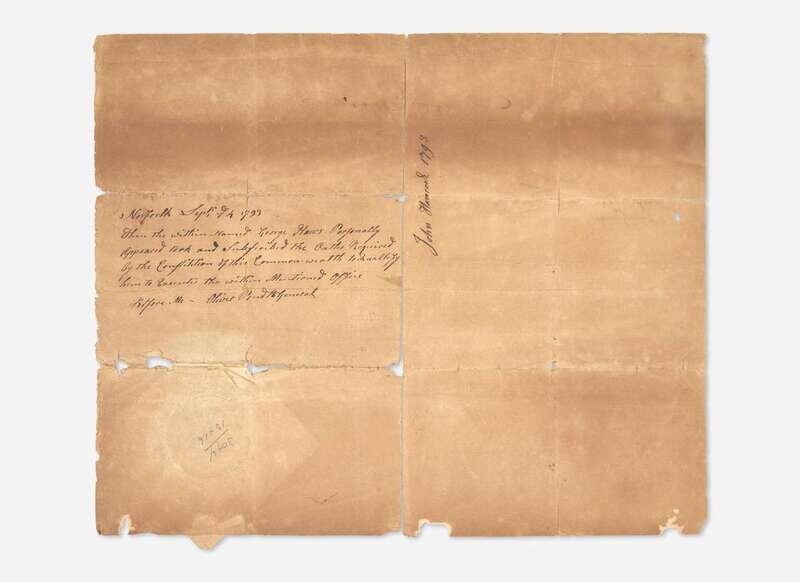 Norfolk Sept. 4 1793
Then the within Named George Haws Personally
Appeared took and Subscribed the Oaths Required
by the Constitution of this Common wealth to qualify
him to Execute the within Mentioned Office
Before Me – Oliver Pond B General
John Hancock 1793